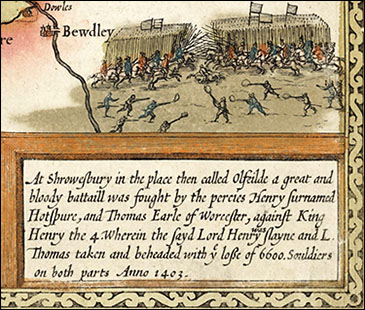 Dowles
Bewdley
re
At Shrowesbury in the place then called Olfeilde a great and
bloody battaill was fought by the percies Henry surnamed
Hotspure, and Thomas Earle of Worcester, against King
Henry the 4. Wherein the sayd Lord Henry was slayne and L.
Thomas taken and beheaded with yͤ losse of 6600. Souldiers
on both parts Anno 1403.